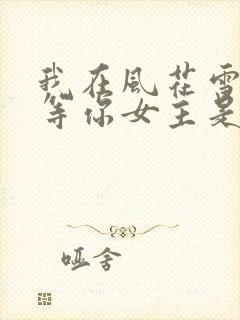 我在風花雪
等你女主是
哑舍